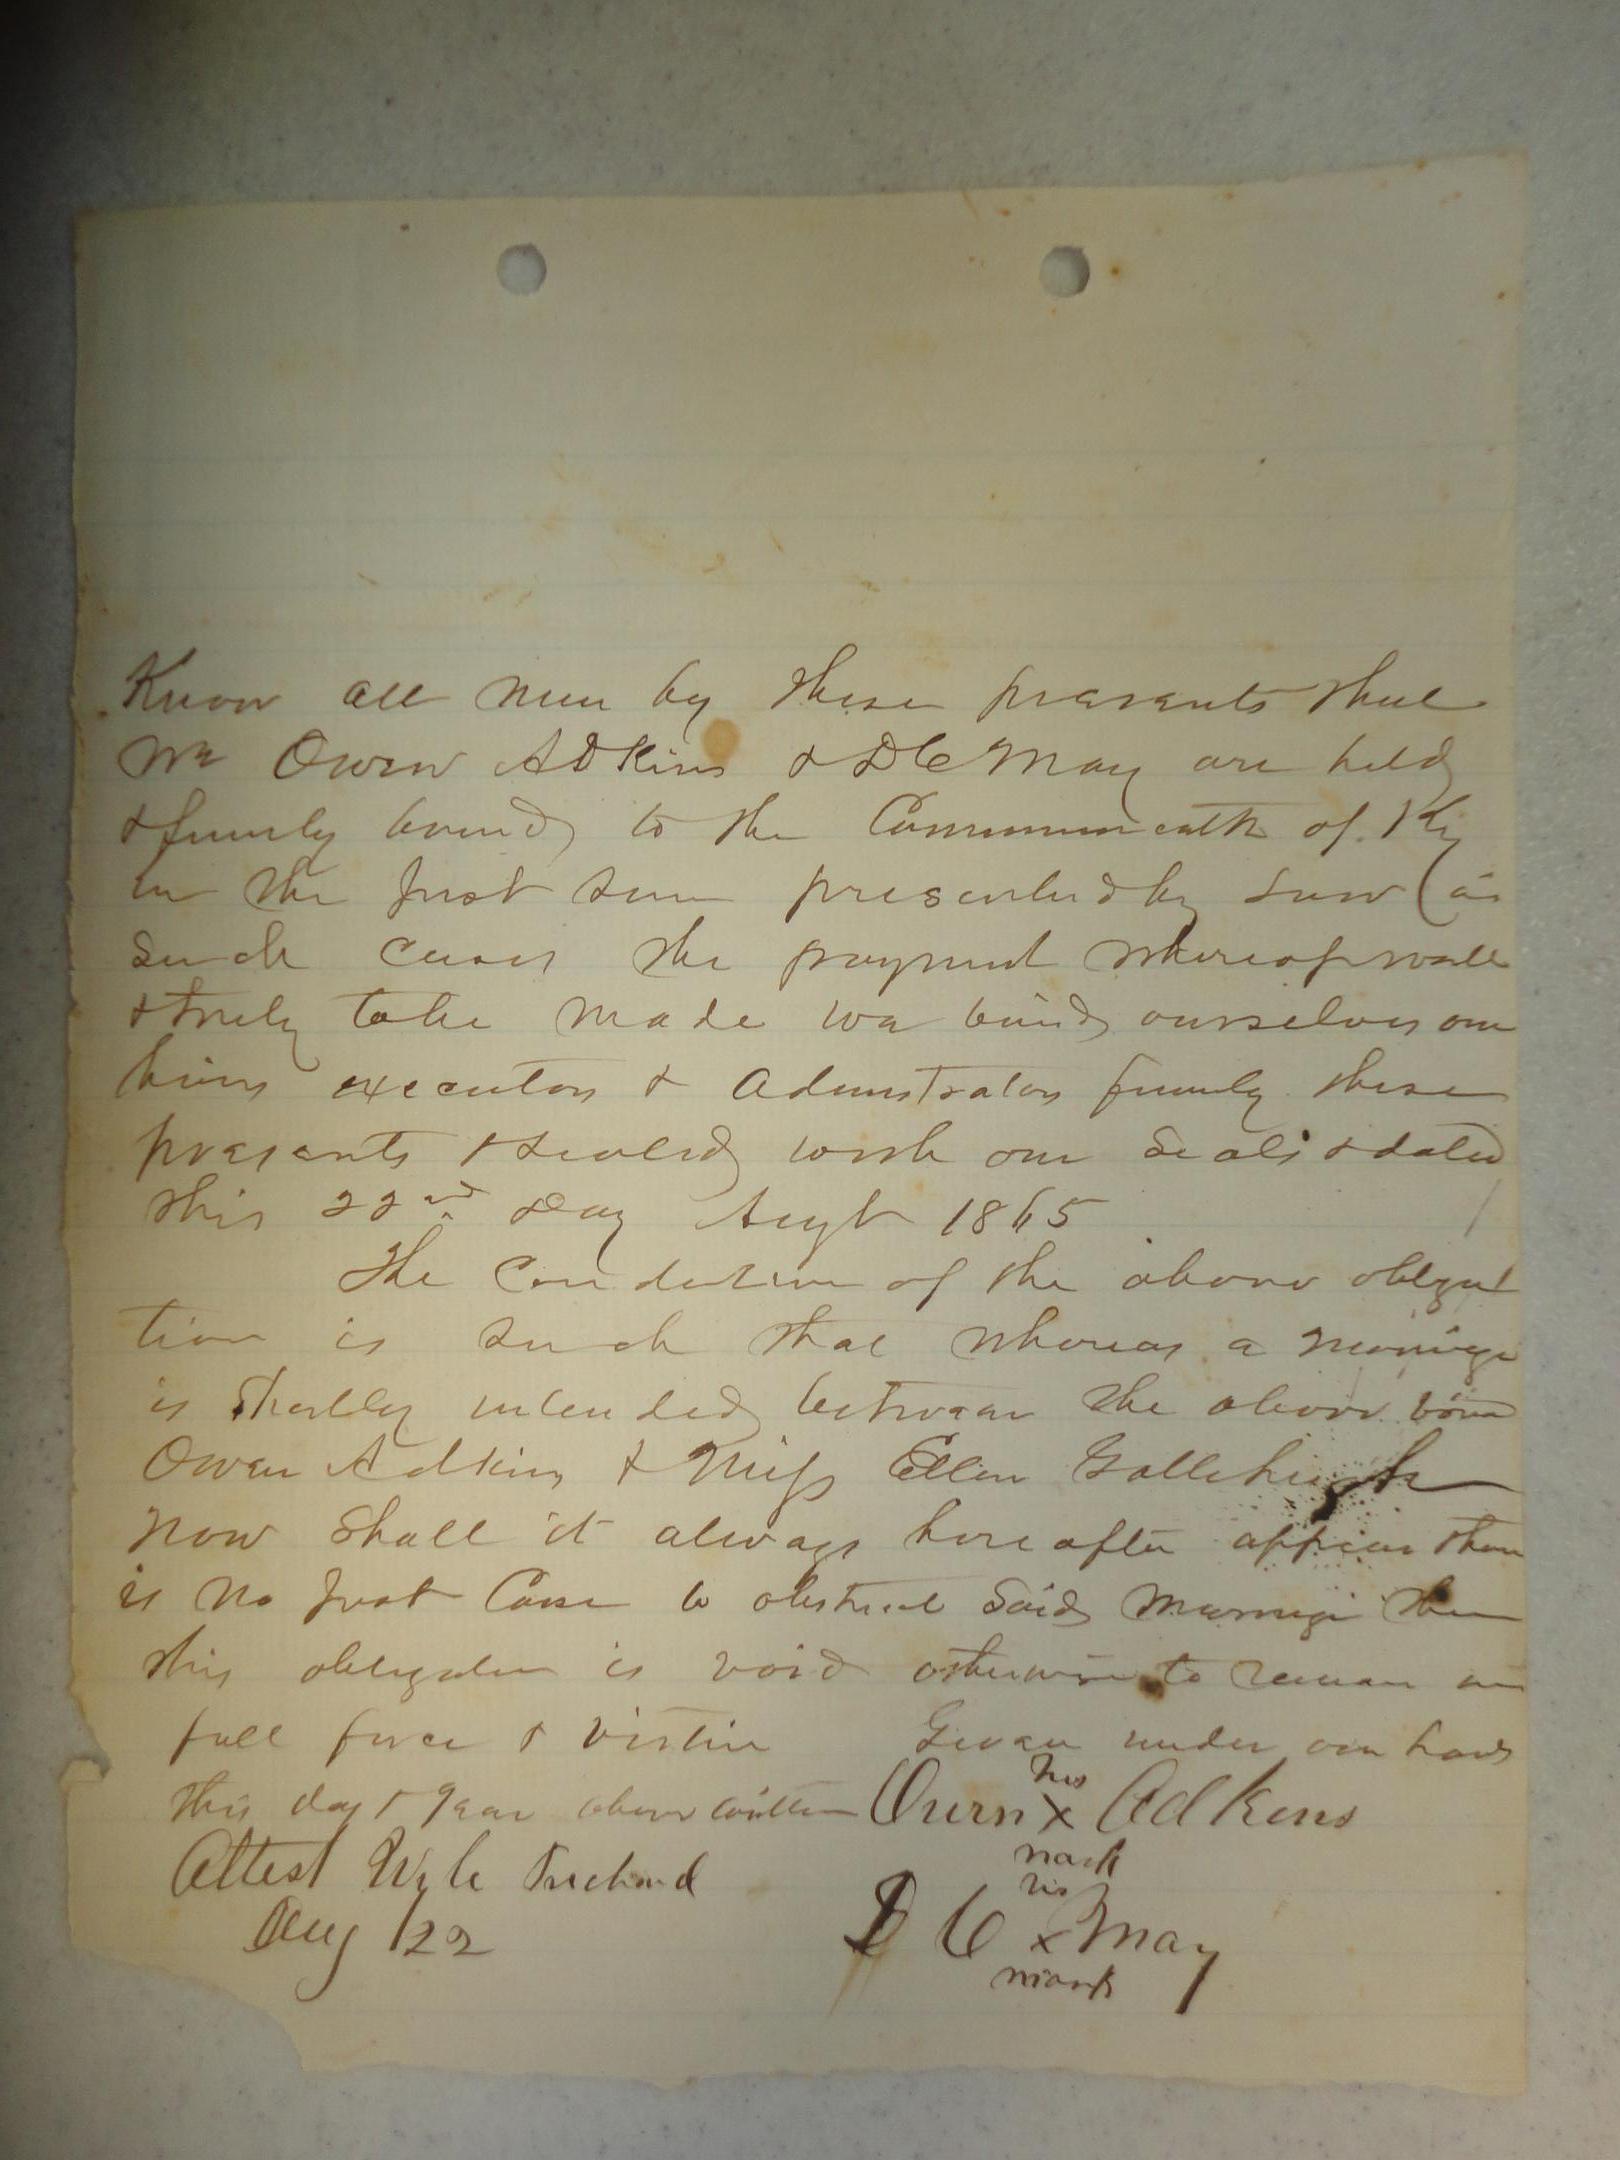 Know all men by these presents that
we Owen Adkins & D C May are held
& firmly bound to the Commonwealth of Ky
in the just sum presented by Law (in
such cases the payment whereof well
& truly to be made we bind ourselves our
heirs executors & Admnstrators firmly these
presents & sealed with our seals & dated
this 22nd Day Augt 1865
The Condition of the above obliga
tion is such that whereas a marriage
is shortly intended between the above bound
Owen Adkins & Miss Ellen
Now shall it always hereafter appear there
is no just Cause to obstruct said marriage then
this obligation is void otherwise to remain in
full force & virtue Given under our hands
this day & year above written Owen his x mark Adkins
Attest
D C his x mark May
Aug 22